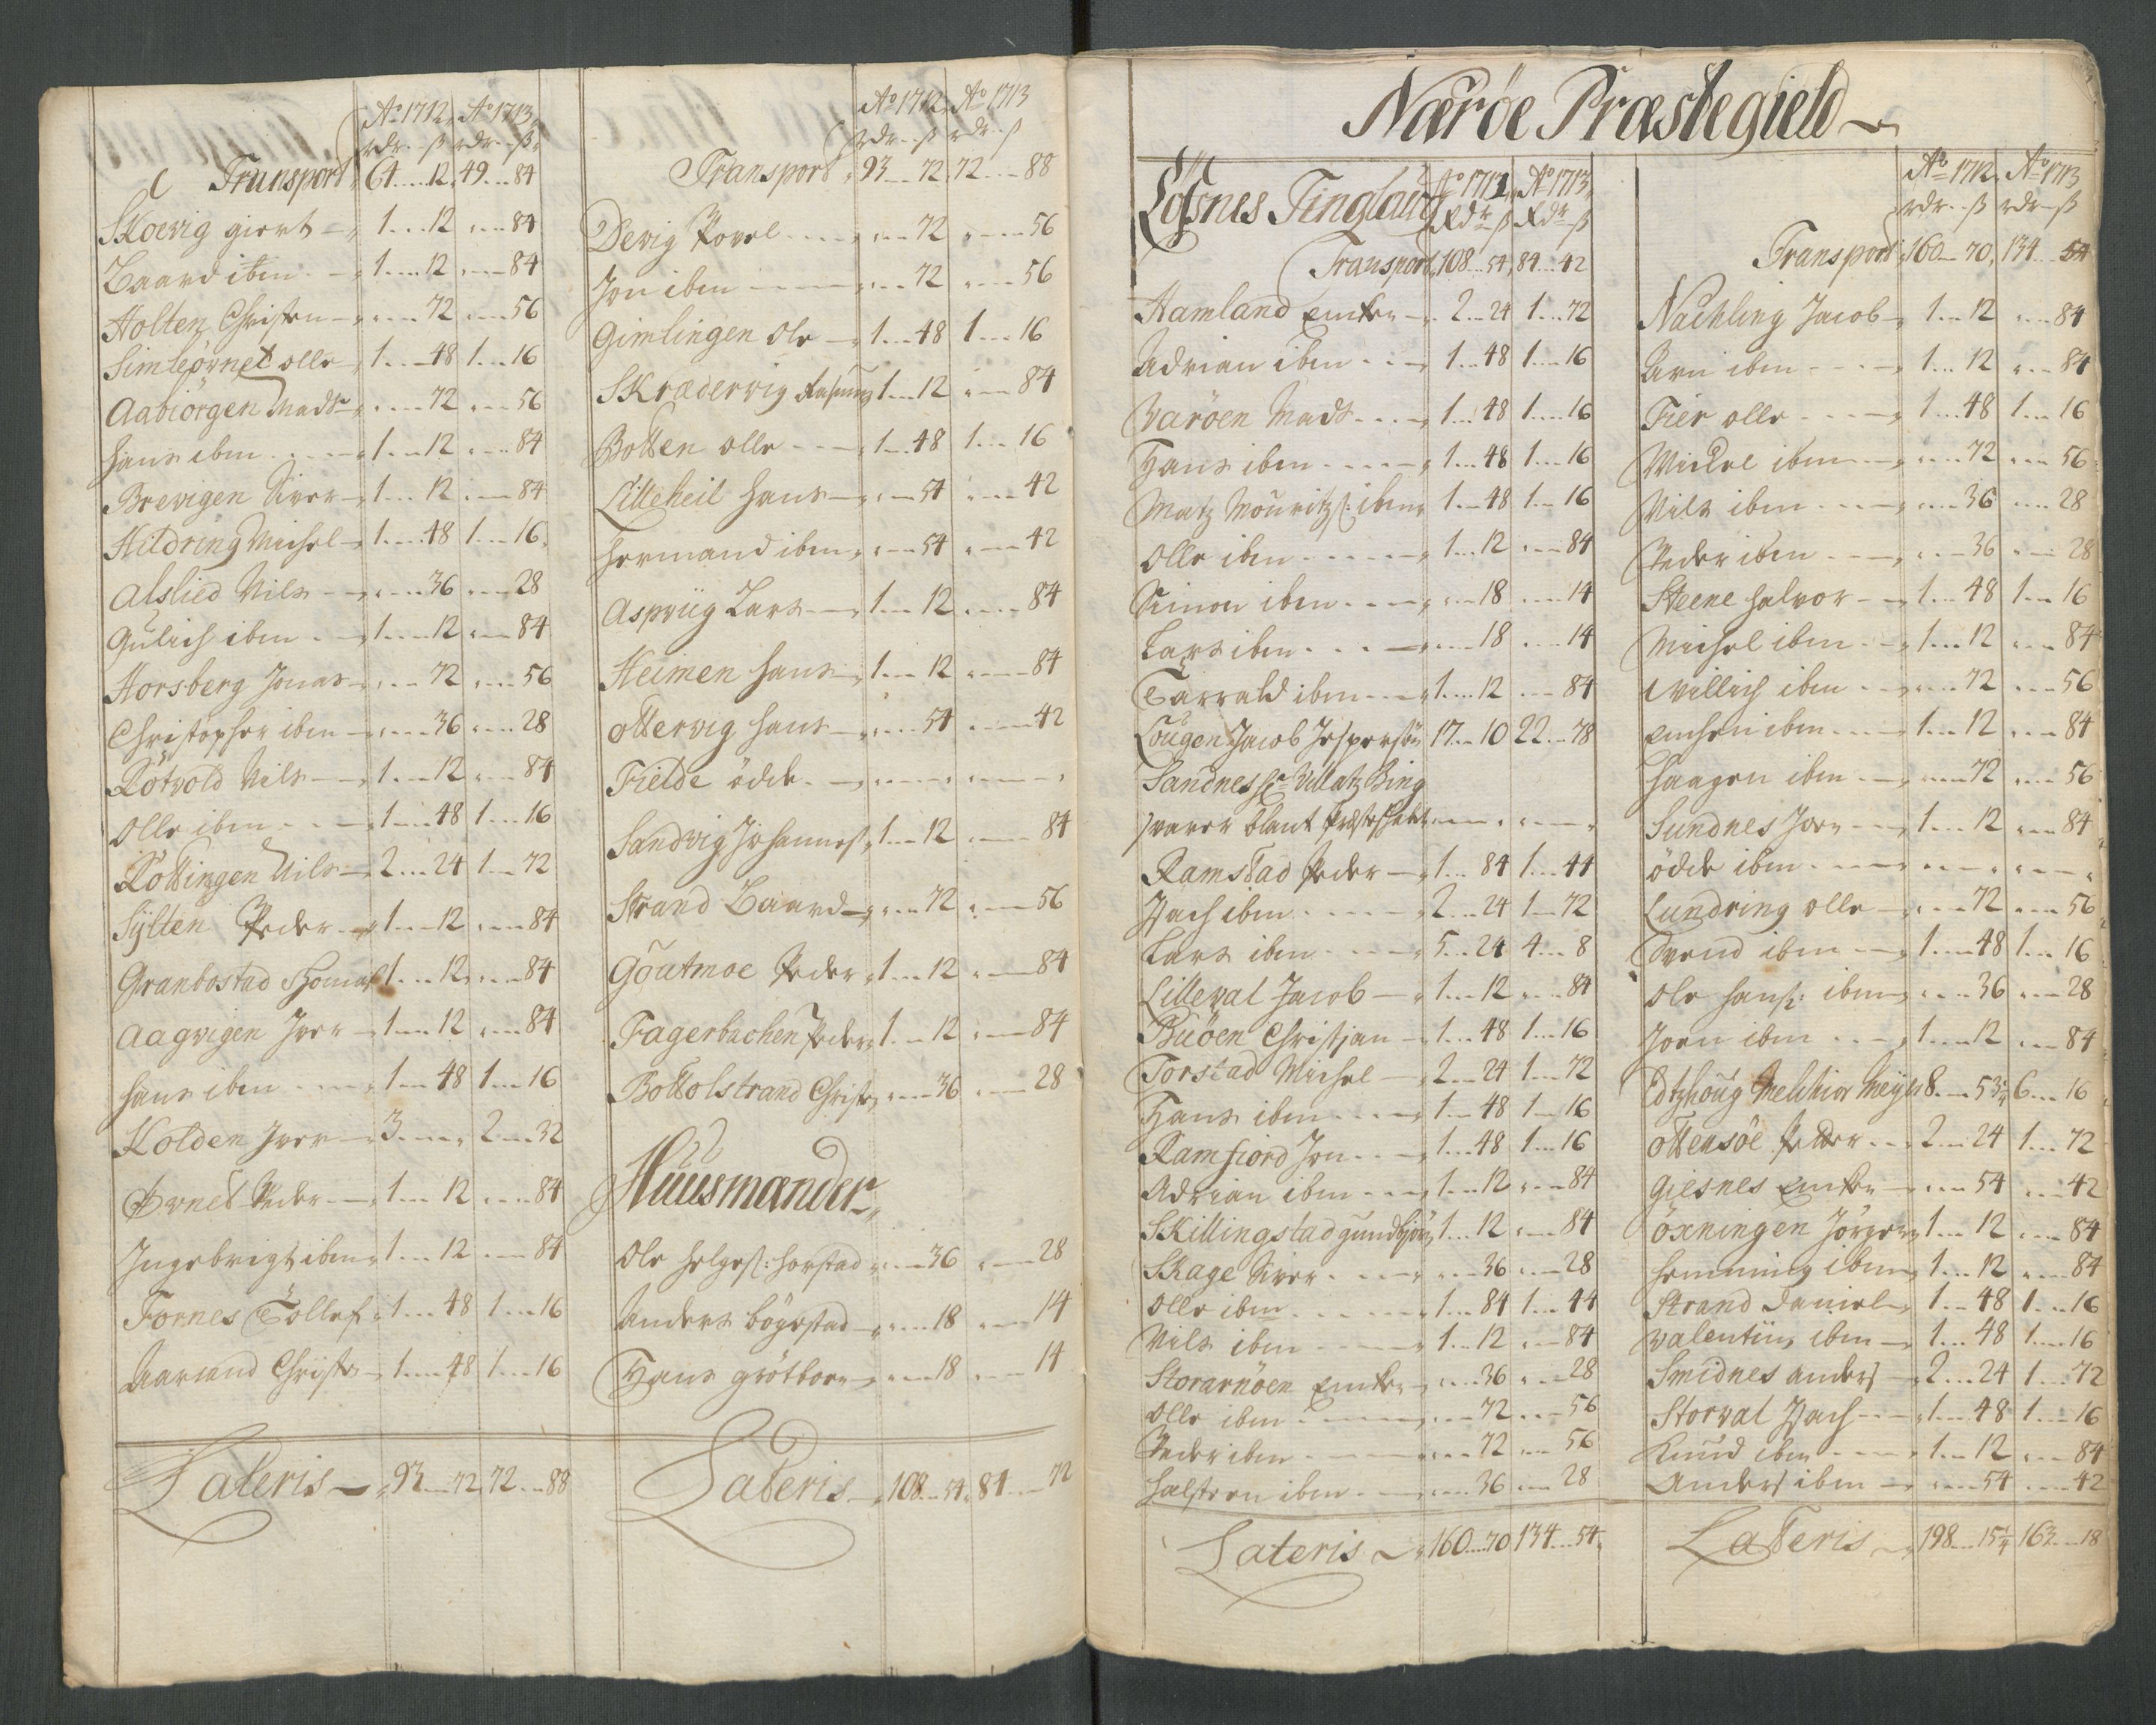 Ao 1712. Ao 1713.
rdr. ß rdr. ß
Transport 64....12. 49....84
Skoevig giert - 1....12 ....84
Baard ibm - 1....12 ....84
Holten Christen - ....72 ....56
Simleörnet olle - 1....48 1....16
Aabiörgen Mads - ....72 ....56
hans ibm - 1....12 ....84
Brevigen Siver - 1....12 ....84
Hildring Michel - 1....48 1....16
Alslied Nils - ....36 ....28
Gulich ibm - 1....12 ....84
Horsberg Jonas - ....72 ....56
Christopher ibm - ....36 ....28
Kötvold Nils - 1....12 ....84
Olle ibm - 1....48 1....16
Kottingen Nils - 2....24 1....72
Sÿlten Peder - 1....12 ....84
Granbostad Thomas 1....12 ....84
Aagvigen Iver - 1....12 ....84
hans ibm - 1....48 1....16
Kolden Iver - 3.... 2....32
Ørnet Peder - 1....12 ....84
Ingebrigt ibm 1....12 ....84
Fornes Tollef 1....48 1....16
Aarland Christen - 1....48 1....16
Lateris - 93....72 72....88
Ao 1712. Ao 1713
rdr. ß rdr. ß
Transport 93....72 72....88
Devig Povel - ....72 ....56
Jon ibm - ....72 ....56
Gimlingen Ole - 1....48 1....16
Skrædervig Rasmus 1....12 ....84
Botten olle - 1....48 1....16
Lilleheil hans - ....54 ....42
hermand ibm ....54 ....42
Aspviig Lars - 1....12 ....84
Heimen hans - 1....12 ....84
Ottervig hans - ....54 ....42
Fielde öde - .... ....
Sandvig Johannes 1....12 ....84
Strand Baard - ....72 ....56
Goatmoe Peder 1....12 ....84
Fagerbachen Peder 1....12 ....84
Bottolstrand Christen ....36 ....28
Huusmænder
Ole helges: horstad ....36 ....28
Anders bögestad - ....18 ....14
Hans gröttere ....18 ....14
Lateris 108....54 84....72
Nærøe Præstegield
Løsnes Tinglaug Ao 1712. Ao 1713.
Rdr ß Rdr ß
Transport 108....54 84....42
Hamland Enken - 2....24 1....72
Adrian ibm - 1....48 1....16
Varöen Mads - 1....48 1....16
Hans ibm - 1....48 1....16
Matz Mouritzs: ibm 1....48 1....16
Olle ibm - 1....12 ....84
Simon ibm - ....18 ....14
Lars ibm - ....18 ....14
Tarrald ibm - 1....12 ....84
Lougen Jacob Jespersön 17....10 22....78
Sandnes
svarer blant .... ....
Ramstad Peder - 1....84 1....44
Isach ibm - 2....24 1....72
Lars ibm - 5....24 4....8
Lilleval Jacob - 1....12 ....84
Buöen Christian - 1....48 1....16
Torstad Michel - 2....24 1....72
Hans ibm - 1....48 1....16
Ramfiord Jon - 1....48 1....16
Adrian ibm - 1....12 ....84
Skillingstad gundbiörn 1....12 ....84
Skage Siver - ....36 ....28
Olle ibm - 1....84 1....44
Nils ibm - 1....12 ....84
Storarnöen Enken ....36 ....28
Olle ibm - ....72 ....56
Peder ibm - ....72 ....56
halsten ibm - ....36 ....28
Lateris - 160....70 134....54
Ao 1712. Ao 1713
rdr. ß rdr. ß
Transport 160....70 134....54
Nachling Jacob - 1....12 ....84
Arn ibm - 1....12 ....84
Fier olle - 1....48 1....16
Mickel ibm - ....72 ....56
Nils ibm - ....36 ....28
Peder ibm - ....36 ....28
Steene halvor - 1....48 1....16
Michel ibm - 1....12 ....84
Willich ibm - ....72 ....56
ibm - 1....12 ....84
haagen ibm - ....72 ....56
Sundnes Joen - 1....12 ....84
öde ibm - .... ....
Lundring olle - ....72 ....56
Svend ibm - 1....48 1....16
Ole hans: ibm ....36 ....28
Joen ibm - 1....12 ....84
Edtzhoug Melchior Meyer 8....53½ 6....16
Ottersöe Petter - 2....24 1....72
Giesnes Enken - ....54 ....42
öxningen Jörgen 1....12 ....84
hemming ibm 1....12 ....84
Strand Daniel - 1....48 1....16
Valentiin ibm - 1....48 1....16
Smidnes Anders - 2....24 1....72
Storval Isach - 1....48 1....16
Knud ibm - 1....12 ....84
Anders ibm - ....54 ....42
Lateris - 198....15½ 163....18